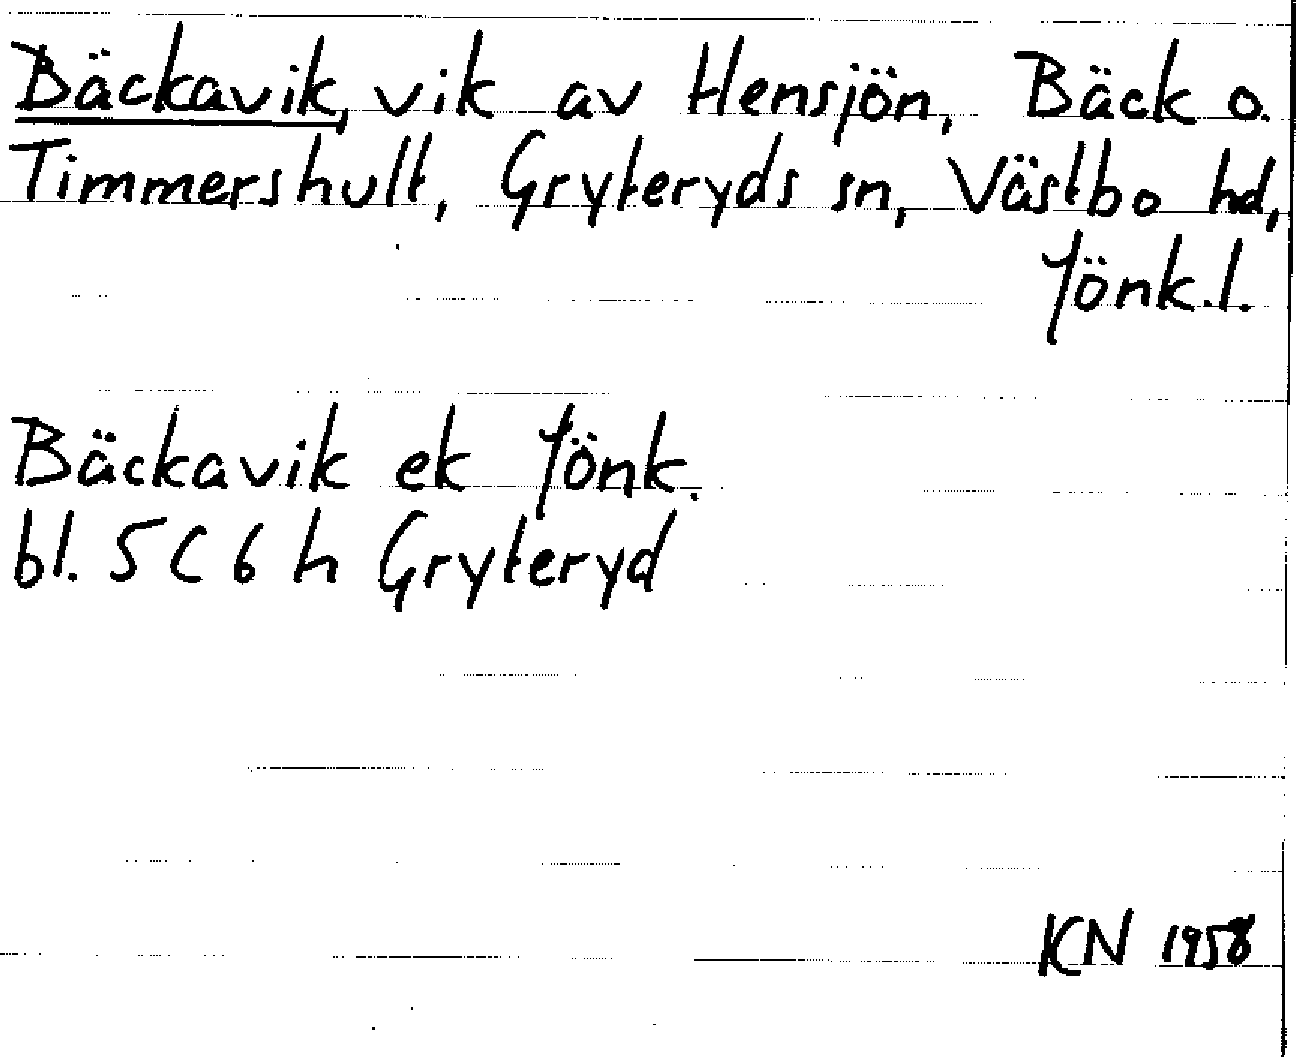 Bäckavik, vik av Hensjön, Bäck o.
Timmershult, Gryteryds sn, Västbo hd,
Jönk.l.
Bäckavik ek Jönk.
bl. 5 C 6 h Gryteryd
KN 1958